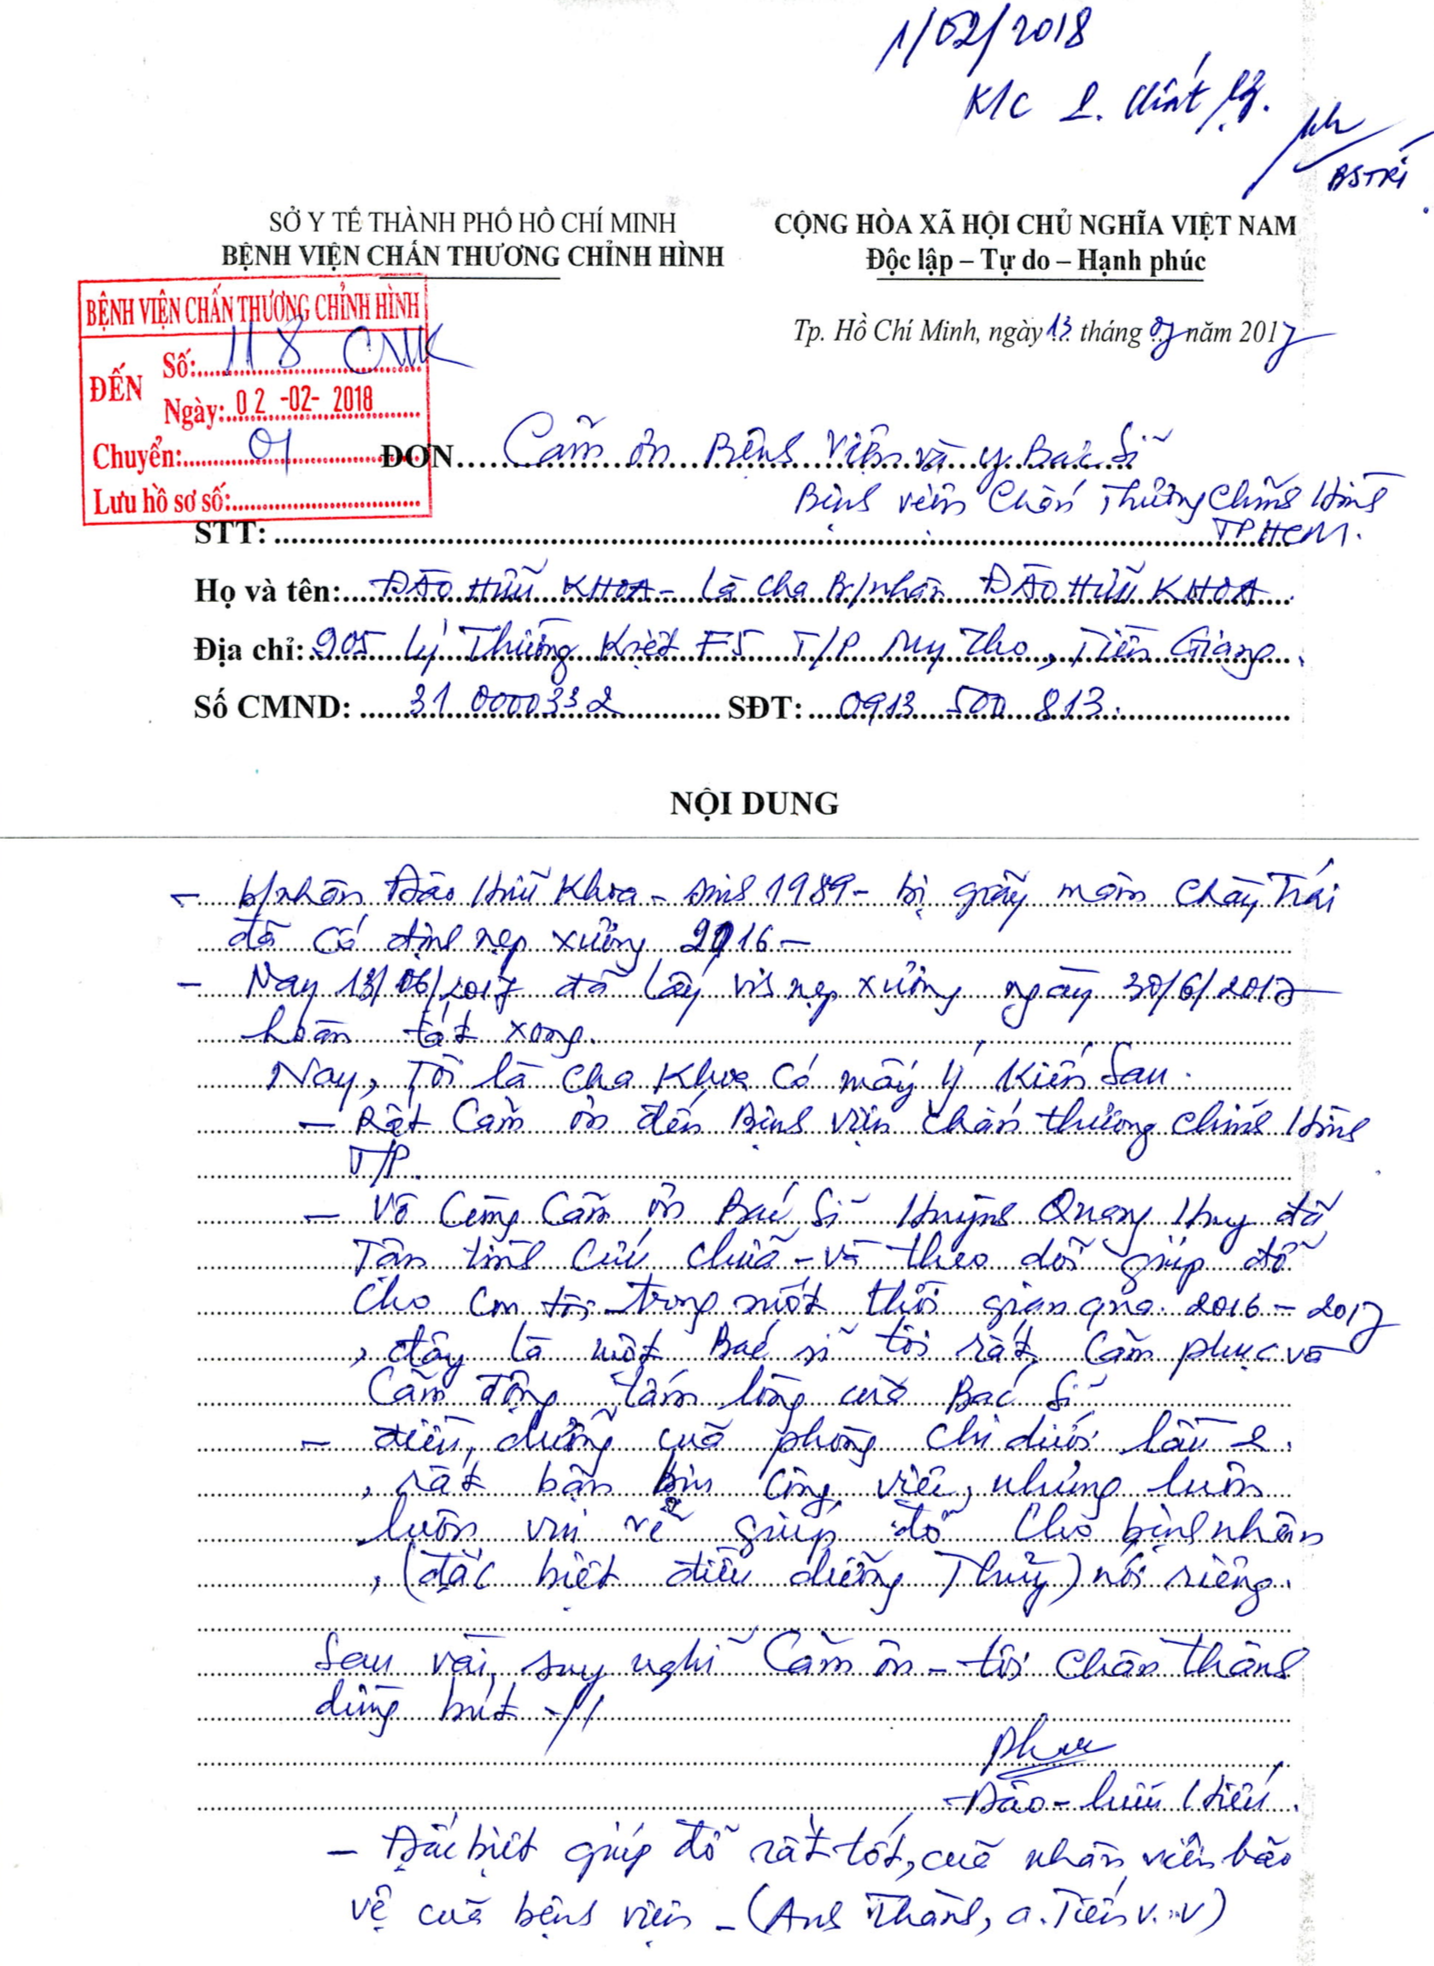 1/02/2018
K/c
BSTRí
SỞ Y TẾ THÀNH PHỐ HỒ CHÍ MINH
BỆNH VIỆN CHẤN THƯƠNG CHỈNH HÌNH
CỘNG HÒA XÃ HỘI CHỦ NGHĨA VIỆT NAM
Độc lập – Tự do – Hạnh phúc
Tp. Hồ Chí Minh, ngày 13 tháng 07 năm 2017
BỆNH VIỆN CHẤN THƯƠNG CHỈNH HÌNH
ĐẾN
Số: 118 CMK
Ngày: 02 -02- 2018
Chuyển: 01
Lưu hồ sơ số:
ĐƠN Cảm ơn Bệnh viện và y Bác Sĩ
Bệnh viện Chấn Thương Chỉnh Hình
TPHCM.
STT:
Họ và tên: ĐÀO HỮU KHOA - là cha B/nhân ĐÀO HỮU KHOA
Địa chỉ: 905 Lý Thường Kiệt F5 T/P Mỹ Tho, Tiền Giang.
Số CMND: 31 0000332 SĐT: 0913 500 813.
NỘI DUNG
- b/nhân Đào Hữu Khoa - sinh 1989 - bị gãy mâm chày Trái
đã cố định nẹp xương 2016 -
- Nay 13/06/2017 đã lấy vis nẹp xương ngày 30/6/2017
hoàn tất xong.
Nay, Tôi là cha Khoa có mấy ý kiến sau.
- Rất Cảm ơn đến Bệnh viện chấn thương chỉnh Hình
T/P.
- Vô Cùng Cảm ơn Bác Sĩ Huỳnh Quang Huy đã
Tận tình Cứu chữa - và theo dõi giúp đỡ
Cho con tôi trong suốt thời gian qua 2016 - 2017
, đây là một Bác sĩ tôi rất Cảm phục và
Cảm động tấm lòng của Bác Sĩ
- điều dưỡng của phòng chi dưới lầu 2.
, rất bận bịu công việc, nhưng luôn
luôn vui vẻ giúp đỡ Cho bệnh nhân
, (đặc biệt điều dưỡng Thủy) nói riêng.
Sau vài suy nghĩ Cảm ơn - tôi chân thành
dừng bút -//
Đào - hữu Hiếu
- Đặc biệt giúp đỡ rất tốt, của nhân viên bảo
vệ của bệnh viện - (Anh Thành, a. Tiến v.v)